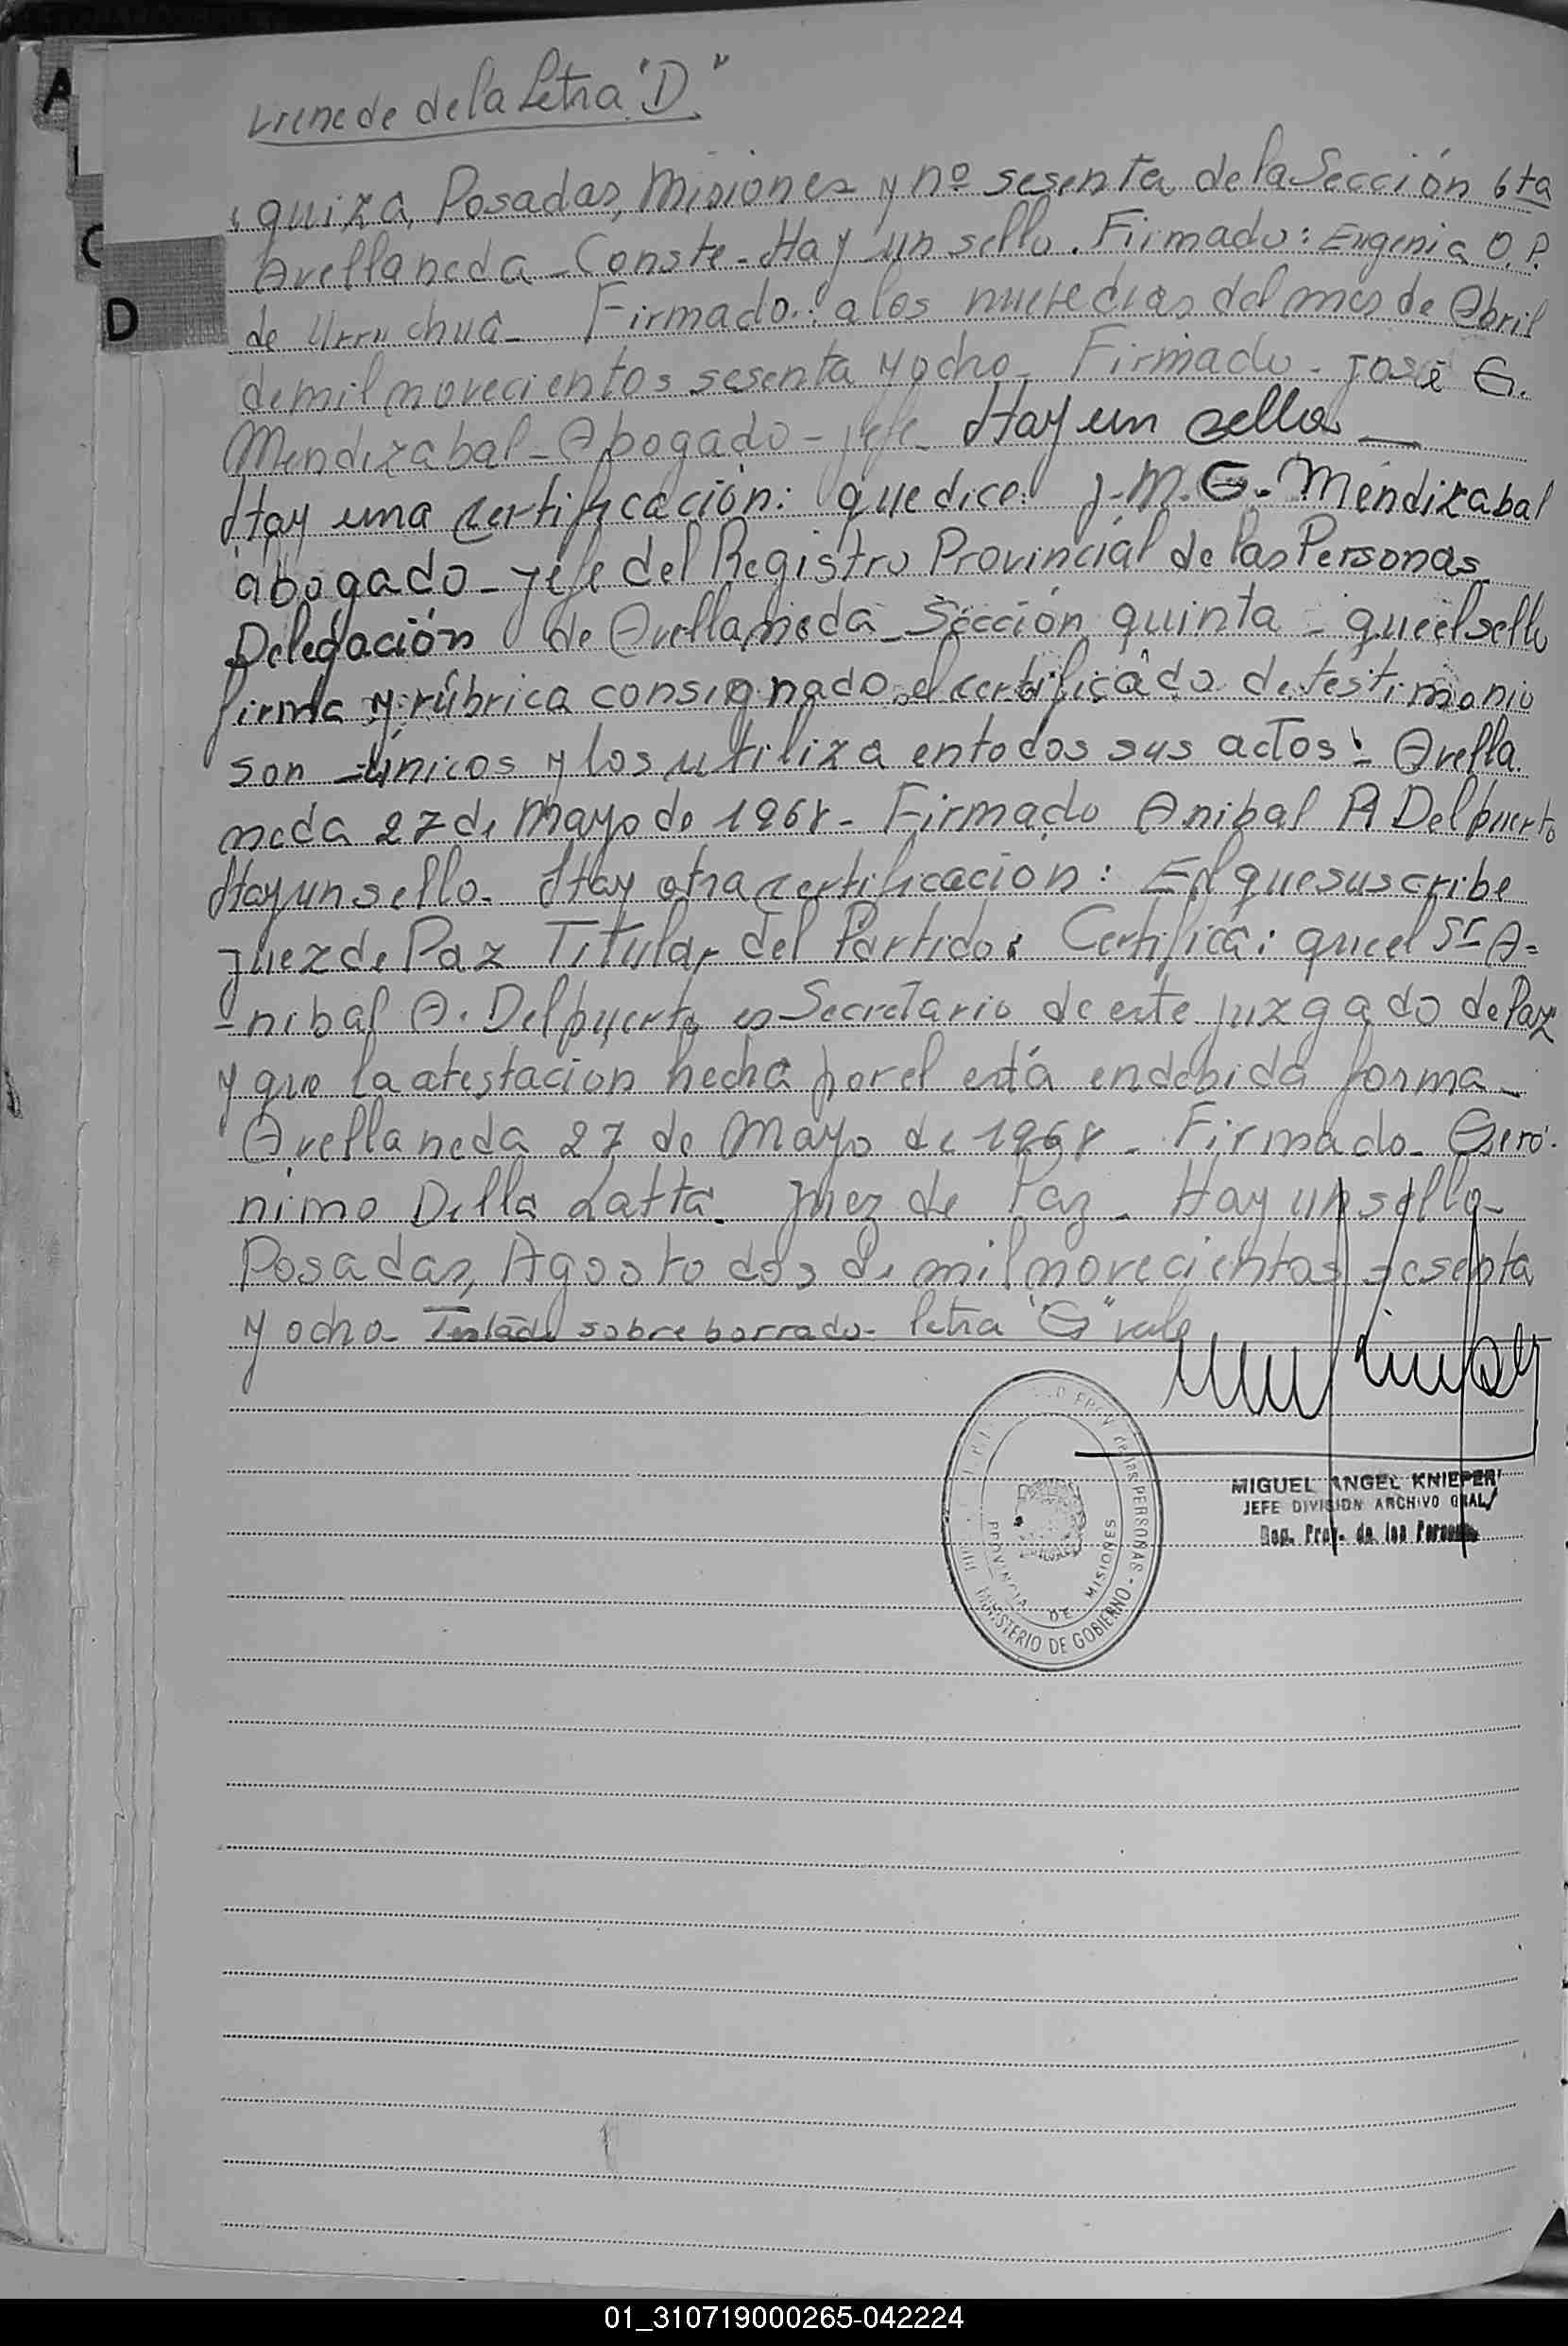 A
C
D
viene de de la Letra "D"
"quiza, Posadas, Misiones y nº sesenta de la Sección 6ta
Avellaneda - Conste - Hay un sello. Firmado: Eugenia O. P.
de Urruchua - Firmado: a los nueve dias del mes de Abril
de mil novecientos sesenta y ocho - Firmado - José G.
Mendizabal - Abogado - jefe - Hay un sello —
Hay una certificación: que dice: J. M. G. Mendizabal
abogado - jefe del Registro Provincial de las Personas
Delegación de Avellaneda - Sección quinta - que el sello
firma y rúbrica consignado el certificado de testimonio
son únicos y los utiliza en todos sus actos: Avella
neda 27 de Mayo de 1968 - Firmado Anibal A Delpuerto
Hay un sello - Hay otra certificación: El que suscribe
juez de Paz Titular del Partido: Certifica: que el Sr A=
-nibal A. Delpuerto es Secretario de este juzgado de Paz
y que la atestacion hecha por el está en debida forma -
Avellaneda 27 de Mayo de 1968 - Firmado - Geró-
nimo Della Latta - Juez de Paz - Hay un sello -
Posadas, Agosto dos de mil novecientos sesenta
y ocho - sobre borrado - letra "G" vale
MIGUEL ANGEL KNIEPER
JEFE DIVISION ARCHIVO GRAL
Reg. Prov. de las Personas
PROV de las PERSONAS - MINISTERIO DE GOBIERNO
PROVINCIA DE MISIONES
01_310719000265-042224